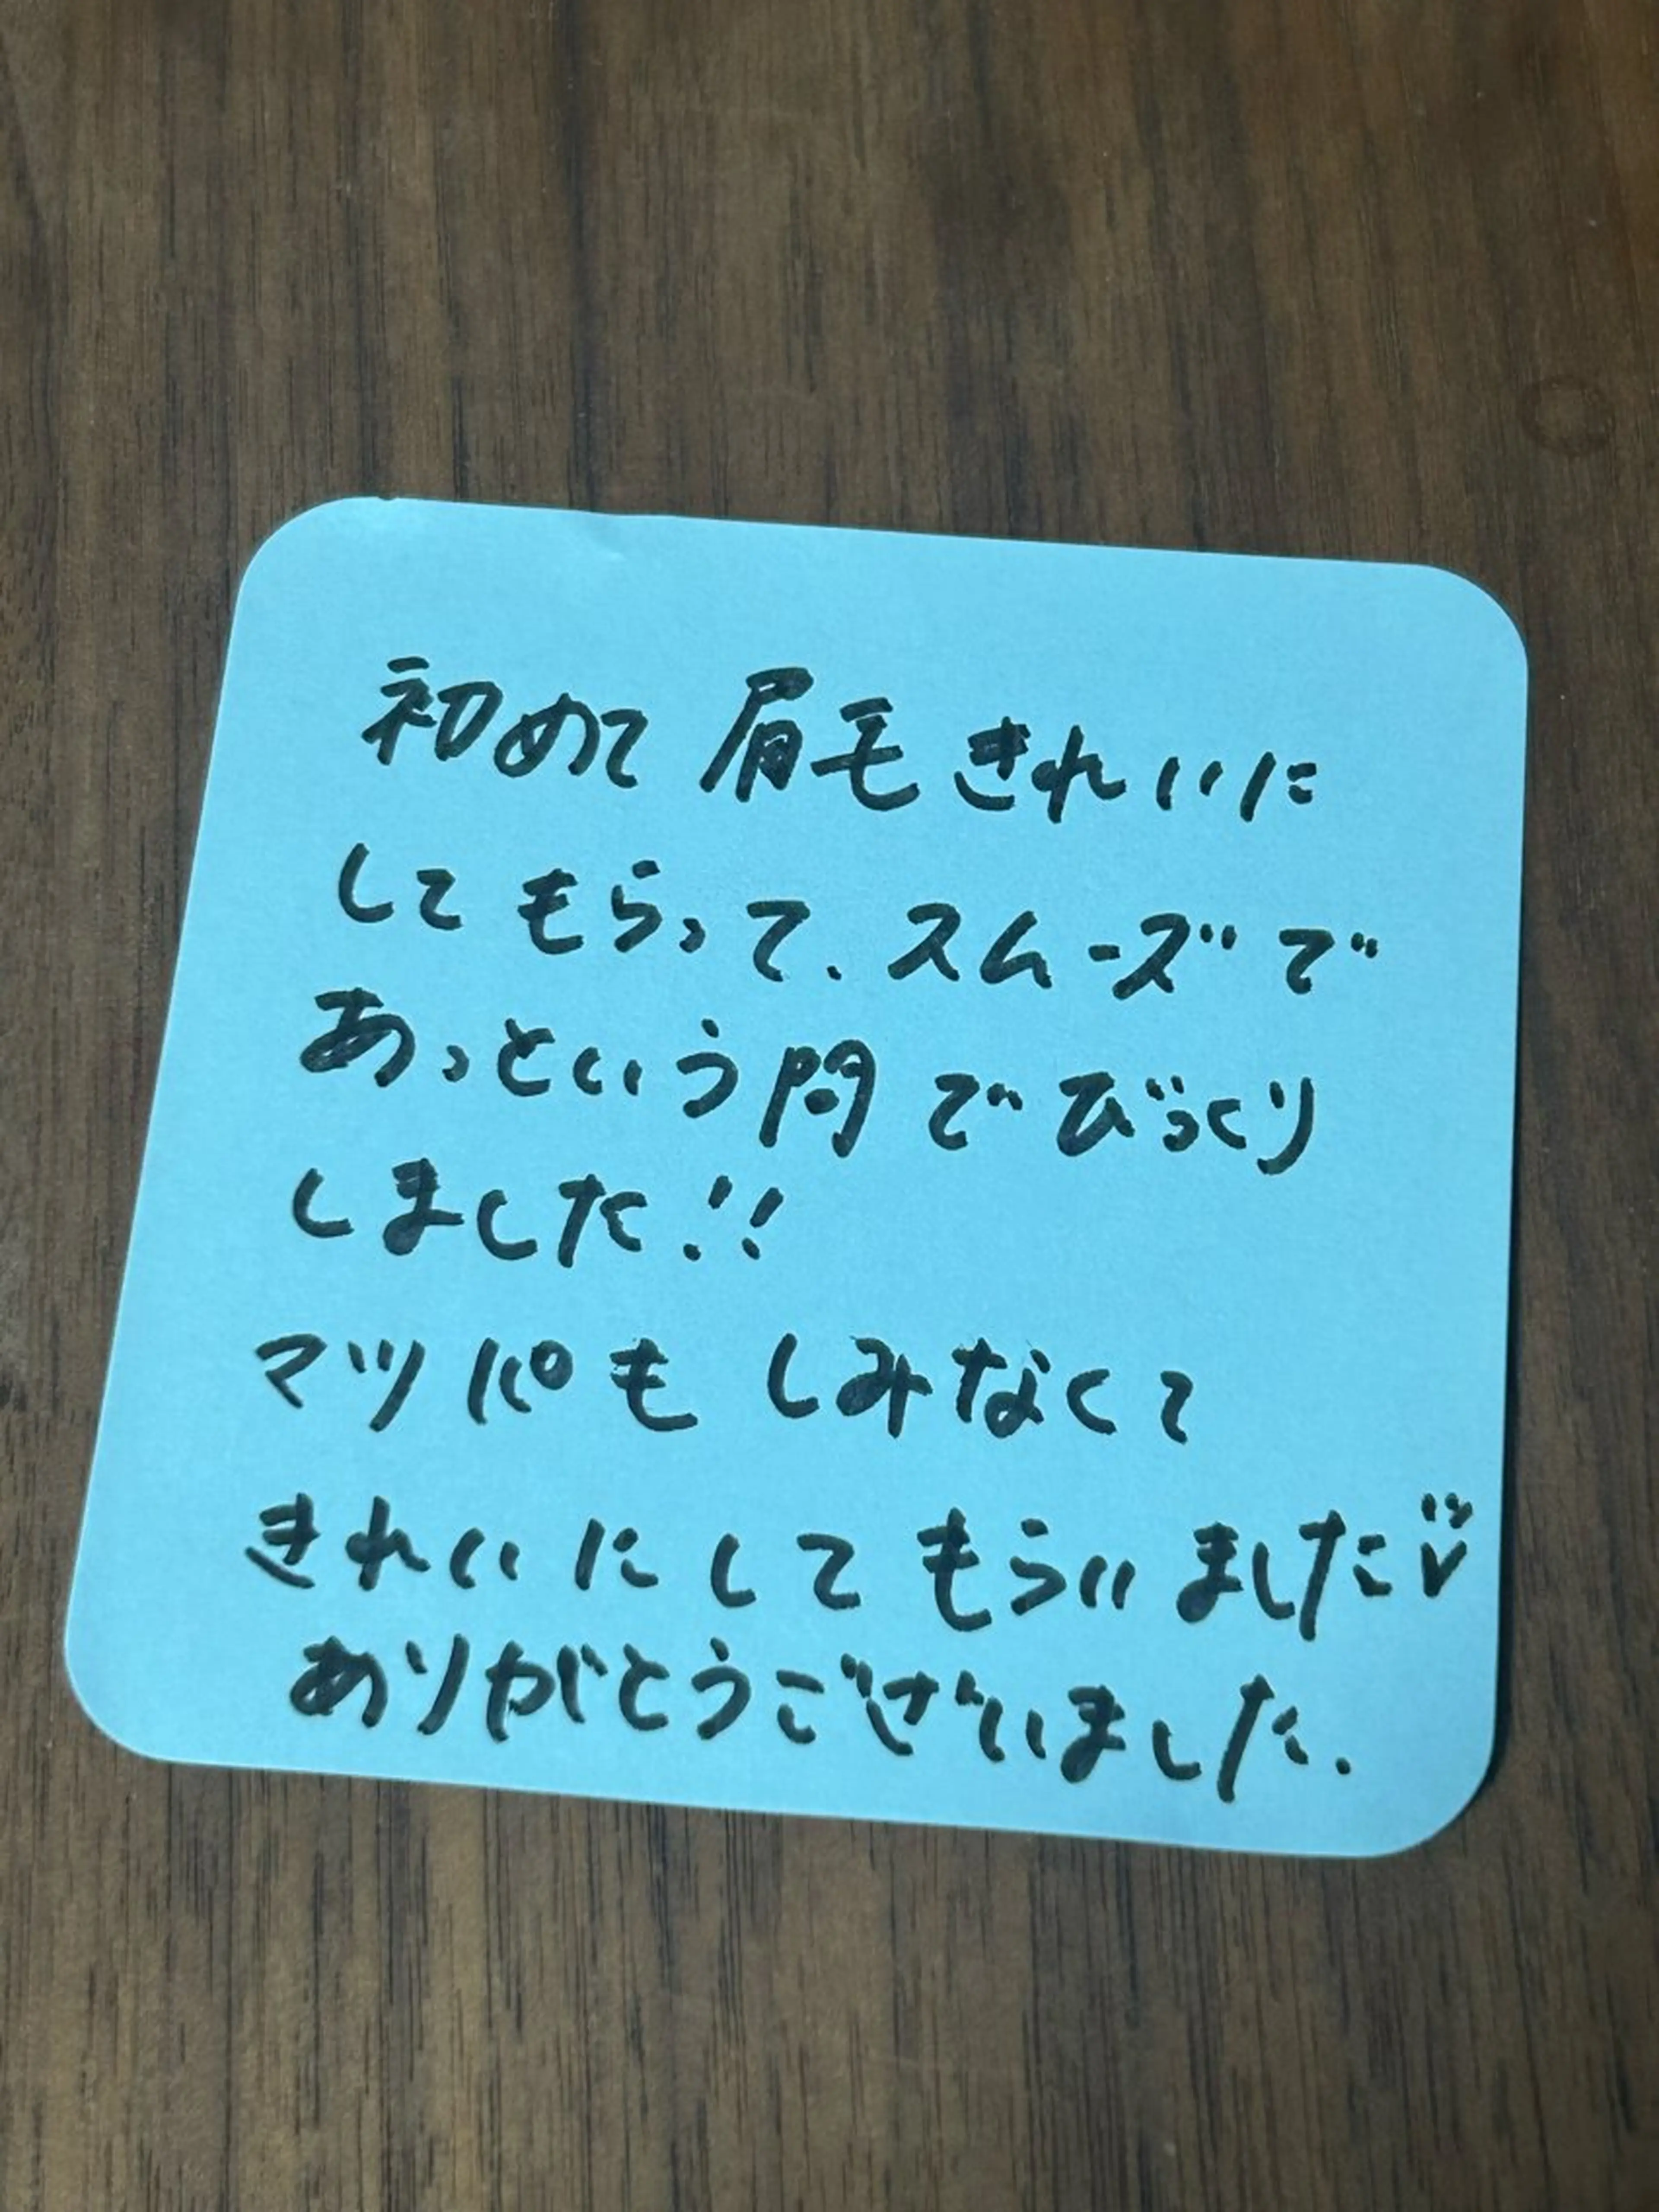 初めて眉毛きれいに
してもらって、スムーズで
あっという間でびっくり
しました!!
マツパもしみなくて
きれいにしてもらいました
ありがとうございました.